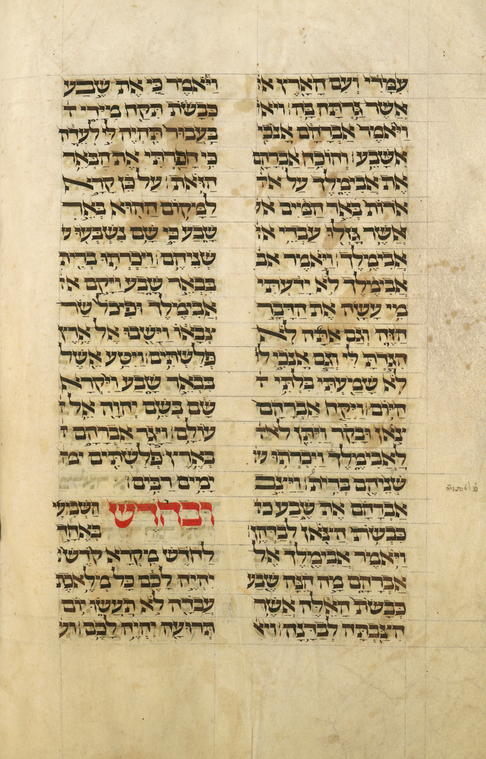 עמדי ועם הארץ א
אשר גרתה בה ויא
ויאמר אברהם אנכי
אשבע והוכח אברהם
את אבימלך על אד
אדות באר המים אש
אשר גזלו עבדי א
אבימלך ויאמר אב
אבימלך לא ידעתי
מי עשה את הדבר
הזה וגם אתה לא
הגדת לי וגם אנכי ל
לא שמעתי בלתי ה
היום ויקח אברהם
צאן ובקר ויתן לא
לאבימלך ויכרתו ש
שניהם ברית ויצב
אברהם את שבע כב
כבשת הצאן לבדהן
ויאמר אבימלך אל
אברהם מה הנה שבע
כבשת האלה אשר
הצבת לבדנה ויא
ויאמר כי את שבע
כבשת תקח מידי ד
בעבור תהיה לי לעדה
כי חפרתי את הבאר
הזאת על כן קרא
למקום ההוא באר
שבע כי שם נשבעו ש
שניהם ויכרתו ברית
בבאר שבע ויקם א
אבימלך ופיכל שר
צבאו וישבו אל ארץ
פלשתים ויטע אשל
בבאר שבע ויקרא
שם בשם יהוה אל
עולם ויגר אברהם ב
בארץ פלשתים ימ
ימים רבים
ובחדש השביעי
באחד
לחדש מקרא קדש
יהיה לכם כל מלאכת
עבדה לא תעשו יום
תרועה יהיה לכם וע